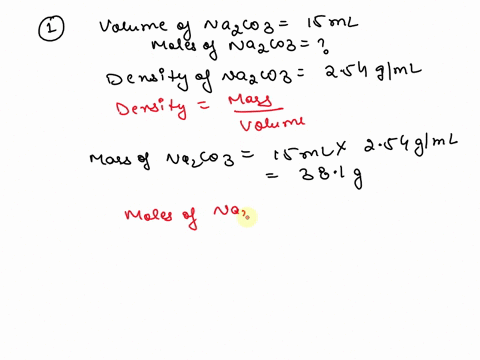 ① Volume of Na2CO3 = 15 mL
Moles of Na2CO3 = ?
Density of Na2CO3 = 2.54 g/mL
Density = Mass / Volume
Mass of Na2CO3 = 15 mL × 2.54 g/mL
= 38.1 g
Moles of Na2